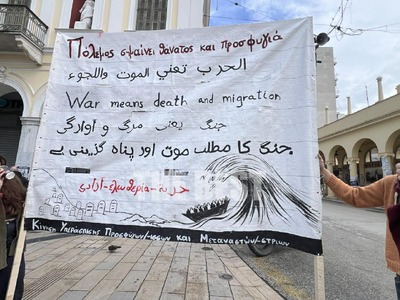 Πόλεμος σημαίνει θάνατος και προσφυγιά
الحرب تعني الموت واللجوء
War means death and migration
جنگ یعنی مرگ و آوارگی
جنگ کا مطلب موت اور پناہ گزینی ہے
حرية-ελευθερία-آزادی
Κίνηση Υπεράσπισης Προσφύγων/-ισσών και Μεταναστών/-στριών